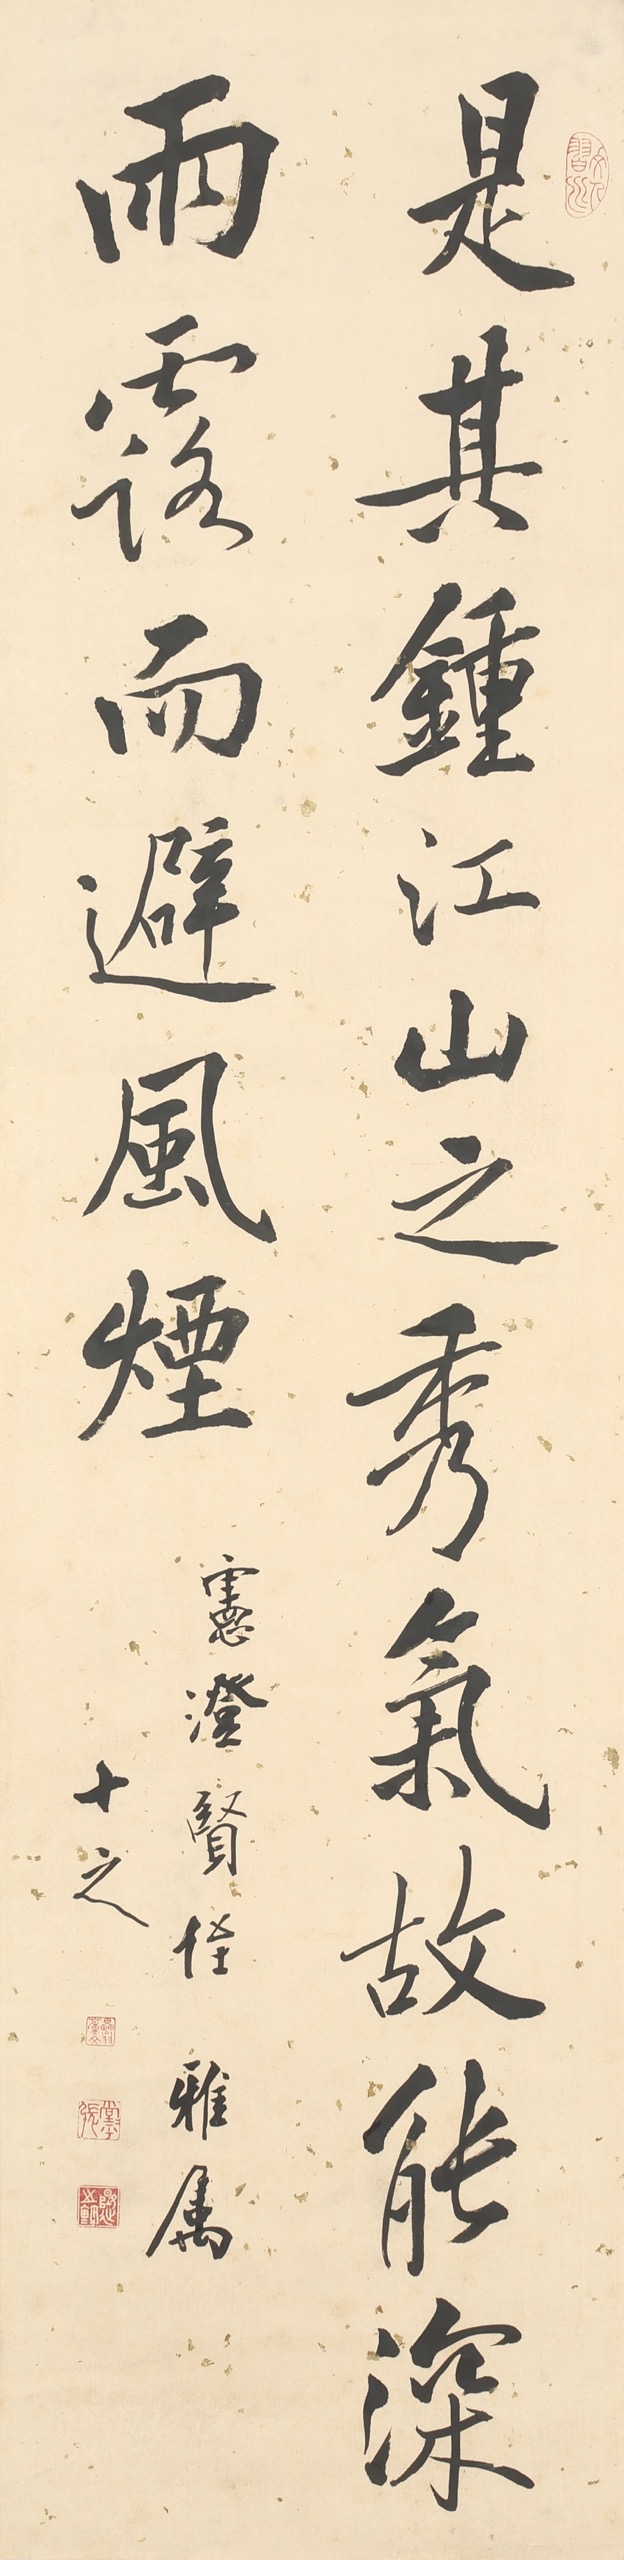 是其鍾江山之秀氣故能深
雨露而避風煙
憲澄賢侄 雅属
十之